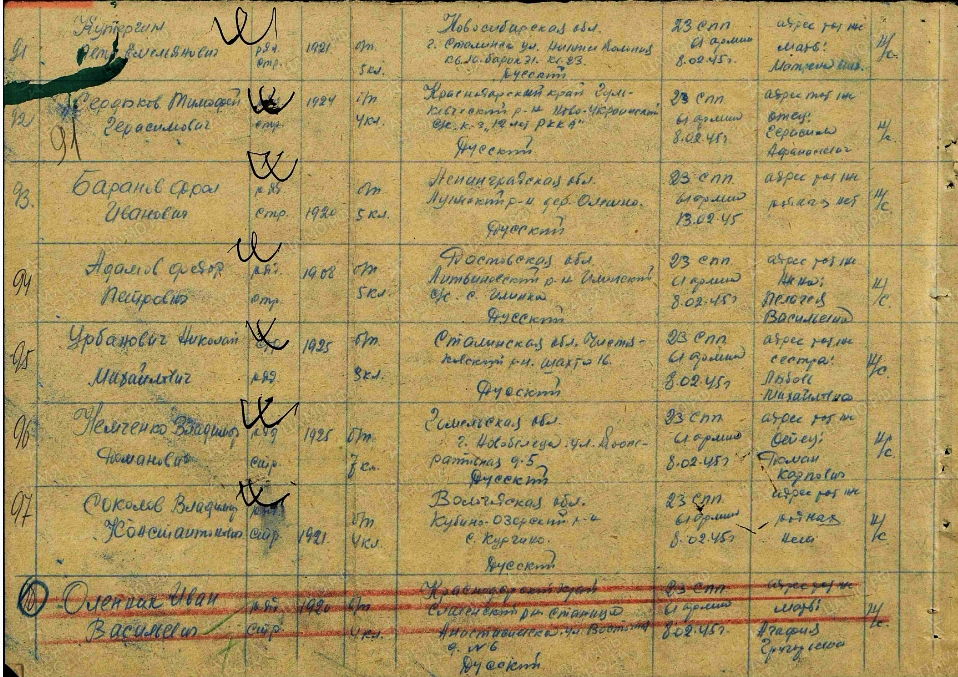 91
Кутергин
Петр Емельянович
ряд.
стр.
1921
б/п
5 кл.
Новосибирская обл.
г. Сталинск ул.
кв. 10 барак 31. кв. 23.
русский
23 СПП
61 армии
8.02.45г.
адрес тот же
мать:
Матрена
н/с.
92
91
Сердюков Тимофей
Герасимович
стр.
1924
б/п
4 кл.
Краснодарский край Гуль-
кевичский р-н Ново-Украинский
с/с. к-з "12 лет РККА"
Русский
23 СПП
61 армии
8.02.45г
адрес тот же
отец:
Герасим
Афанасьевич
н/с
93.
Баранов Фрол
Иванович
ряд
стр.
1920
б/п
5 кл.
Ленинградская обл.
р-н дер.
Русский
23 СПП
61 армии
13.02.45
адрес тот же
родных нет
н/с
94
Адамов Федор
Петрович
ряд.
стр.
1908
б/п
5 кл.
Ростовская обл.
Литвиновский р-н Ильинский
с/с. с. Ильинка
Русский
23 СПП
61 армии
8.02.45г
адрес тот же
Жена:
Пелагея
Васильевна
н/с
95
Урбанович Николай
Михайлович
ряд.
1925
б/п
3 кл.
Сталинская обл. Чистя-
ковский р-н. шахта 16.
Русский
23 СПП
61 армии
8.02.45г
адрес тот же
сестра:
Любовь
Михайловна
н/с
96
Немченко Владимир
Романович
ряд
стр.
1925
б/п
7 кл.
Гомельская обл.
г. Новобелица ул. Коопе-
ративная д. 5
Русский
23 СПП
61 армии
8.02.45г
адрес тот же
Отец:
Роман
Карпович
н/с
97
Соколов Владимир
Константинович
стр.
1921
б/п
4 кл.
Вологдская обл.
Кубино-Озерский р-н
с. Кургино.
Русский
23 СПП
61 армии
8.02.45г
адрес тот же
родных
нет
н/с
Олейник Иван
Васильевич
ряд.
стр.
1920
б/п
4 кл.
Краснодарский край
Славенский р-н станица
ул.
д. №6
Русский
23 СПП
61 армии
8.02.45г.
адрес тот же
мать:
Агафия
Григорьевна
н/с.